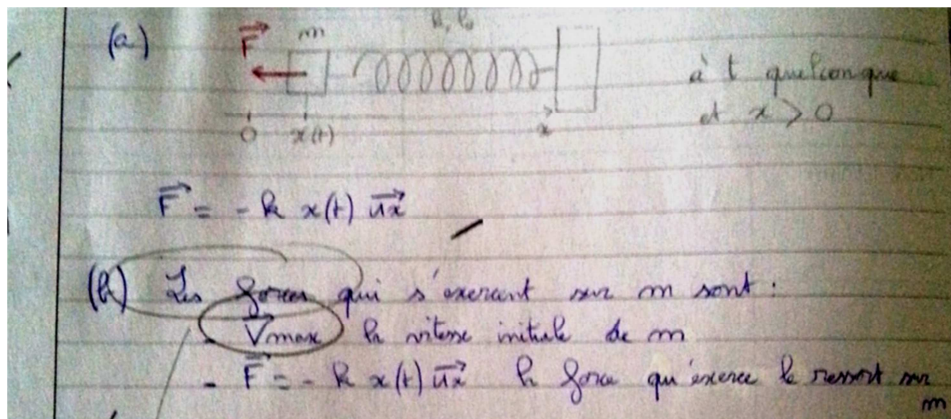 (a) F m k, l₀
à t quelconque
et x > 0
0 x(t) x
F = - k x(t) ux
(b) Les forces qui s'exercent sur m sont :
- Vmax la vitesse initiale de m
- F = - k x(t) ux la force qu'exerce le ressort sur
m